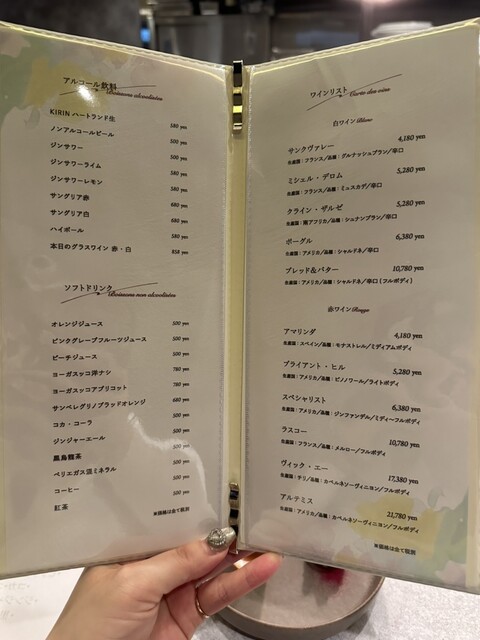 アルコール飲料
Boissons alcoolisées
KIRIN ハートランド生 580 yen
ノンアルコールビール 500 yen
ジンサワー 500 yen
ジンサワーライム 580 yen
ジンサワーレモン 580 yen
サングリア赤 680 yen
サングリア白 680 yen
ハイボール 580 yen
本日のグラスワイン 赤・白 858 yen
ソフトドリンク
Boissons non alcoolisées
オレンジジュース 500 yen
ピンクグレープフルーツジュース 500 yen
ピーチジュース 500 yen
ヨーガスッコ洋ナシ 780 yen
ヨーガスッコアプリコット 780 yen
サンペレグリノブラッドオレンジ 680 yen
コカ・コーラ 500 yen
ジンジャーエール 500 yen
黒烏龍茶 500 yen
ペリエガス混ミネラル 500 yen
コーヒー 500 yen
紅茶 500 yen
※価格は全て税別
ワインリスト
Carte des vins
白ワイン Blanc
サンクヴァレー 4,180 yen
生産国：フランス／品種：グルナッシュブラン／辛口
ミシェル・デロム 5,280 yen
生産国：フランス／品種：ミュスカデ／辛口
クライン・ザルゼ 5,280 yen
生産国：南アフリカ／品種：シュナンブラン／辛口
ボーグル 6,380 yen
生産国：アメリカ／品種：シャルドネ／辛口
ブレッド&バター 10,780 yen
生産国：アメリカ／品種：シャルドネ／辛口（フルボディ）
赤ワイン Rouge
アマリンダ 4,180 yen
生産国：スペイン／品種：モナストレル／ミディアムボディ
ブライアント・ヒル 5,280 yen
生産国：アメリカ／品種：ピノノワール／ライトボディ
スペシャリスト 6,380 yen
生産国：アメリカ／品種：ジンファンデル／ミディーフルボディ
ラスコー 10,780 yen
生産国：フランス／品種：メルロー／フルボディ
ヴィック・エー 17,380 yen
生産国：チリ／品種：カベルネソーヴィニヨン／フルボディ
アルテミス 21,780 yen
生産国：アメリカ／品種：カベルネソーヴィニヨン／フルボディ
※価格は全て税別